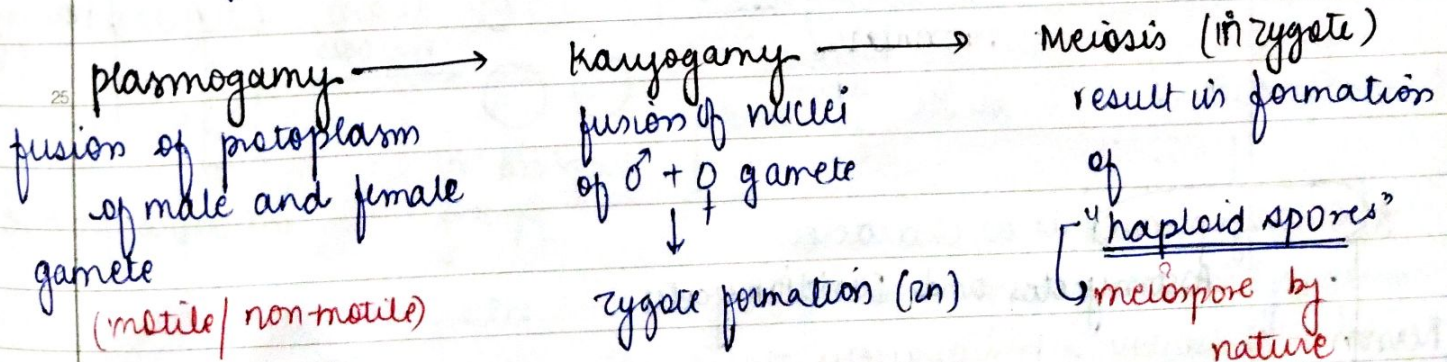 25
plasmogamy ⟶ Karyogamy ⟶ Meiosis (in zygote)
fusion of protoplasm
of male and female
gamete
(motile/ non-motile)
fusion of nuclei
of ♂ + ♀ gamete
↓
zygote formation (2n)
result in formation
of
"haploid spores"
meiospore by
nature